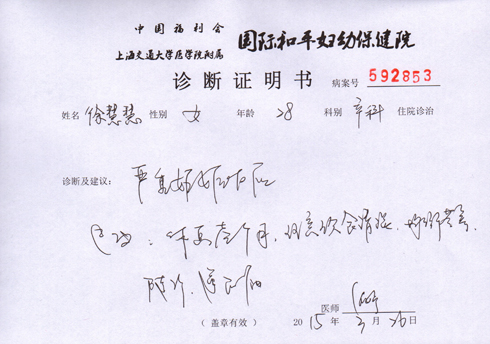 中国福利会
上海交通大学医学院附属 国际和平妇幼保健院
诊断证明书
病案号 592853
姓名 徐慧慧 性别 女 年龄 28 科别 产科 住院诊治
诊断及建议: 严重妊娠反应
建议：休息壹个月，注意饮食情况，
随诊
医师
（盖章有效） 2015年3月26日